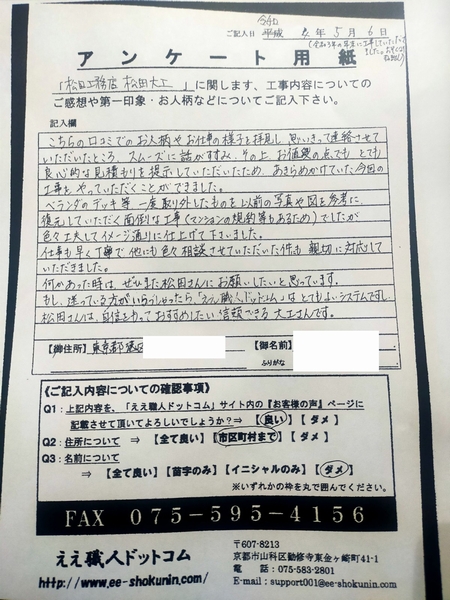 令和
ご記入日 平成 4 年 5 月 6 日
(令和3年の年末に工事していただいて
ました。おそくなり
すみません)
アンケート用紙
「松田工務店 松田大工 」に関します、工事内容についての
ご感想や第一印象・お人柄などについてご記入下さい。
記入欄
こちらの口コミでのお人柄やお仕事の様子を拝見し、思いきって連絡させて
いただいたところ、スムーズに話がすすみ、その上、お値段の点でも とても
良心的な見積もりを提示していただいたため、あきらめかけていた今回の
工事を やっていただくことができました。
ベランダのデッキ等、一度取り外したものを以前の写真や図を参考に
復元していただく面倒な工事(マンションの規約等もあるため)でしたが
色々工夫してイメージ通りに仕上げて下さいました。
仕事も早く丁寧で他にも色々相談させていただいた件も 親切に対応して
いただきました。
何かあった時は、ぜひまた松田さんにお願いしたいと思っています。
もし、迷っている方がいらっしゃったら「ええ職人ドットコム」は とてもよいシステムですし、
松田さんは、自信をもっておすすめしたい信頼できる 大工さんです。
【御住所】 東京都港区
【御名前】
ふりがな
《ご記入内容についての確認事項》
Q1：上記内容を、「ええ職人ドットコム」サイト内の『お客様の声』ページに
記載させて頂いてよろしいでしょうか？⇒ 【 良い 】 【 ダメ 】
Q2：住所について ⇒ 【全て良い】 【市区町村まで】 【 ダメ 】
Q3：名前について
⇒ 【全て良い】 【苗字のみ】 【イニシャルのみ】 【 ダメ 】
※いずれかの枠を丸で囲んでください。
FAX 075-595-4156
ええ職人ドットコム
http://www.ee-shokunin.com/
〒607-8213
京都市山科区勧修寺東金ヶ崎町41-1
電 話 : 075-583-2801
E-mail : support001@ee-shokunin.com